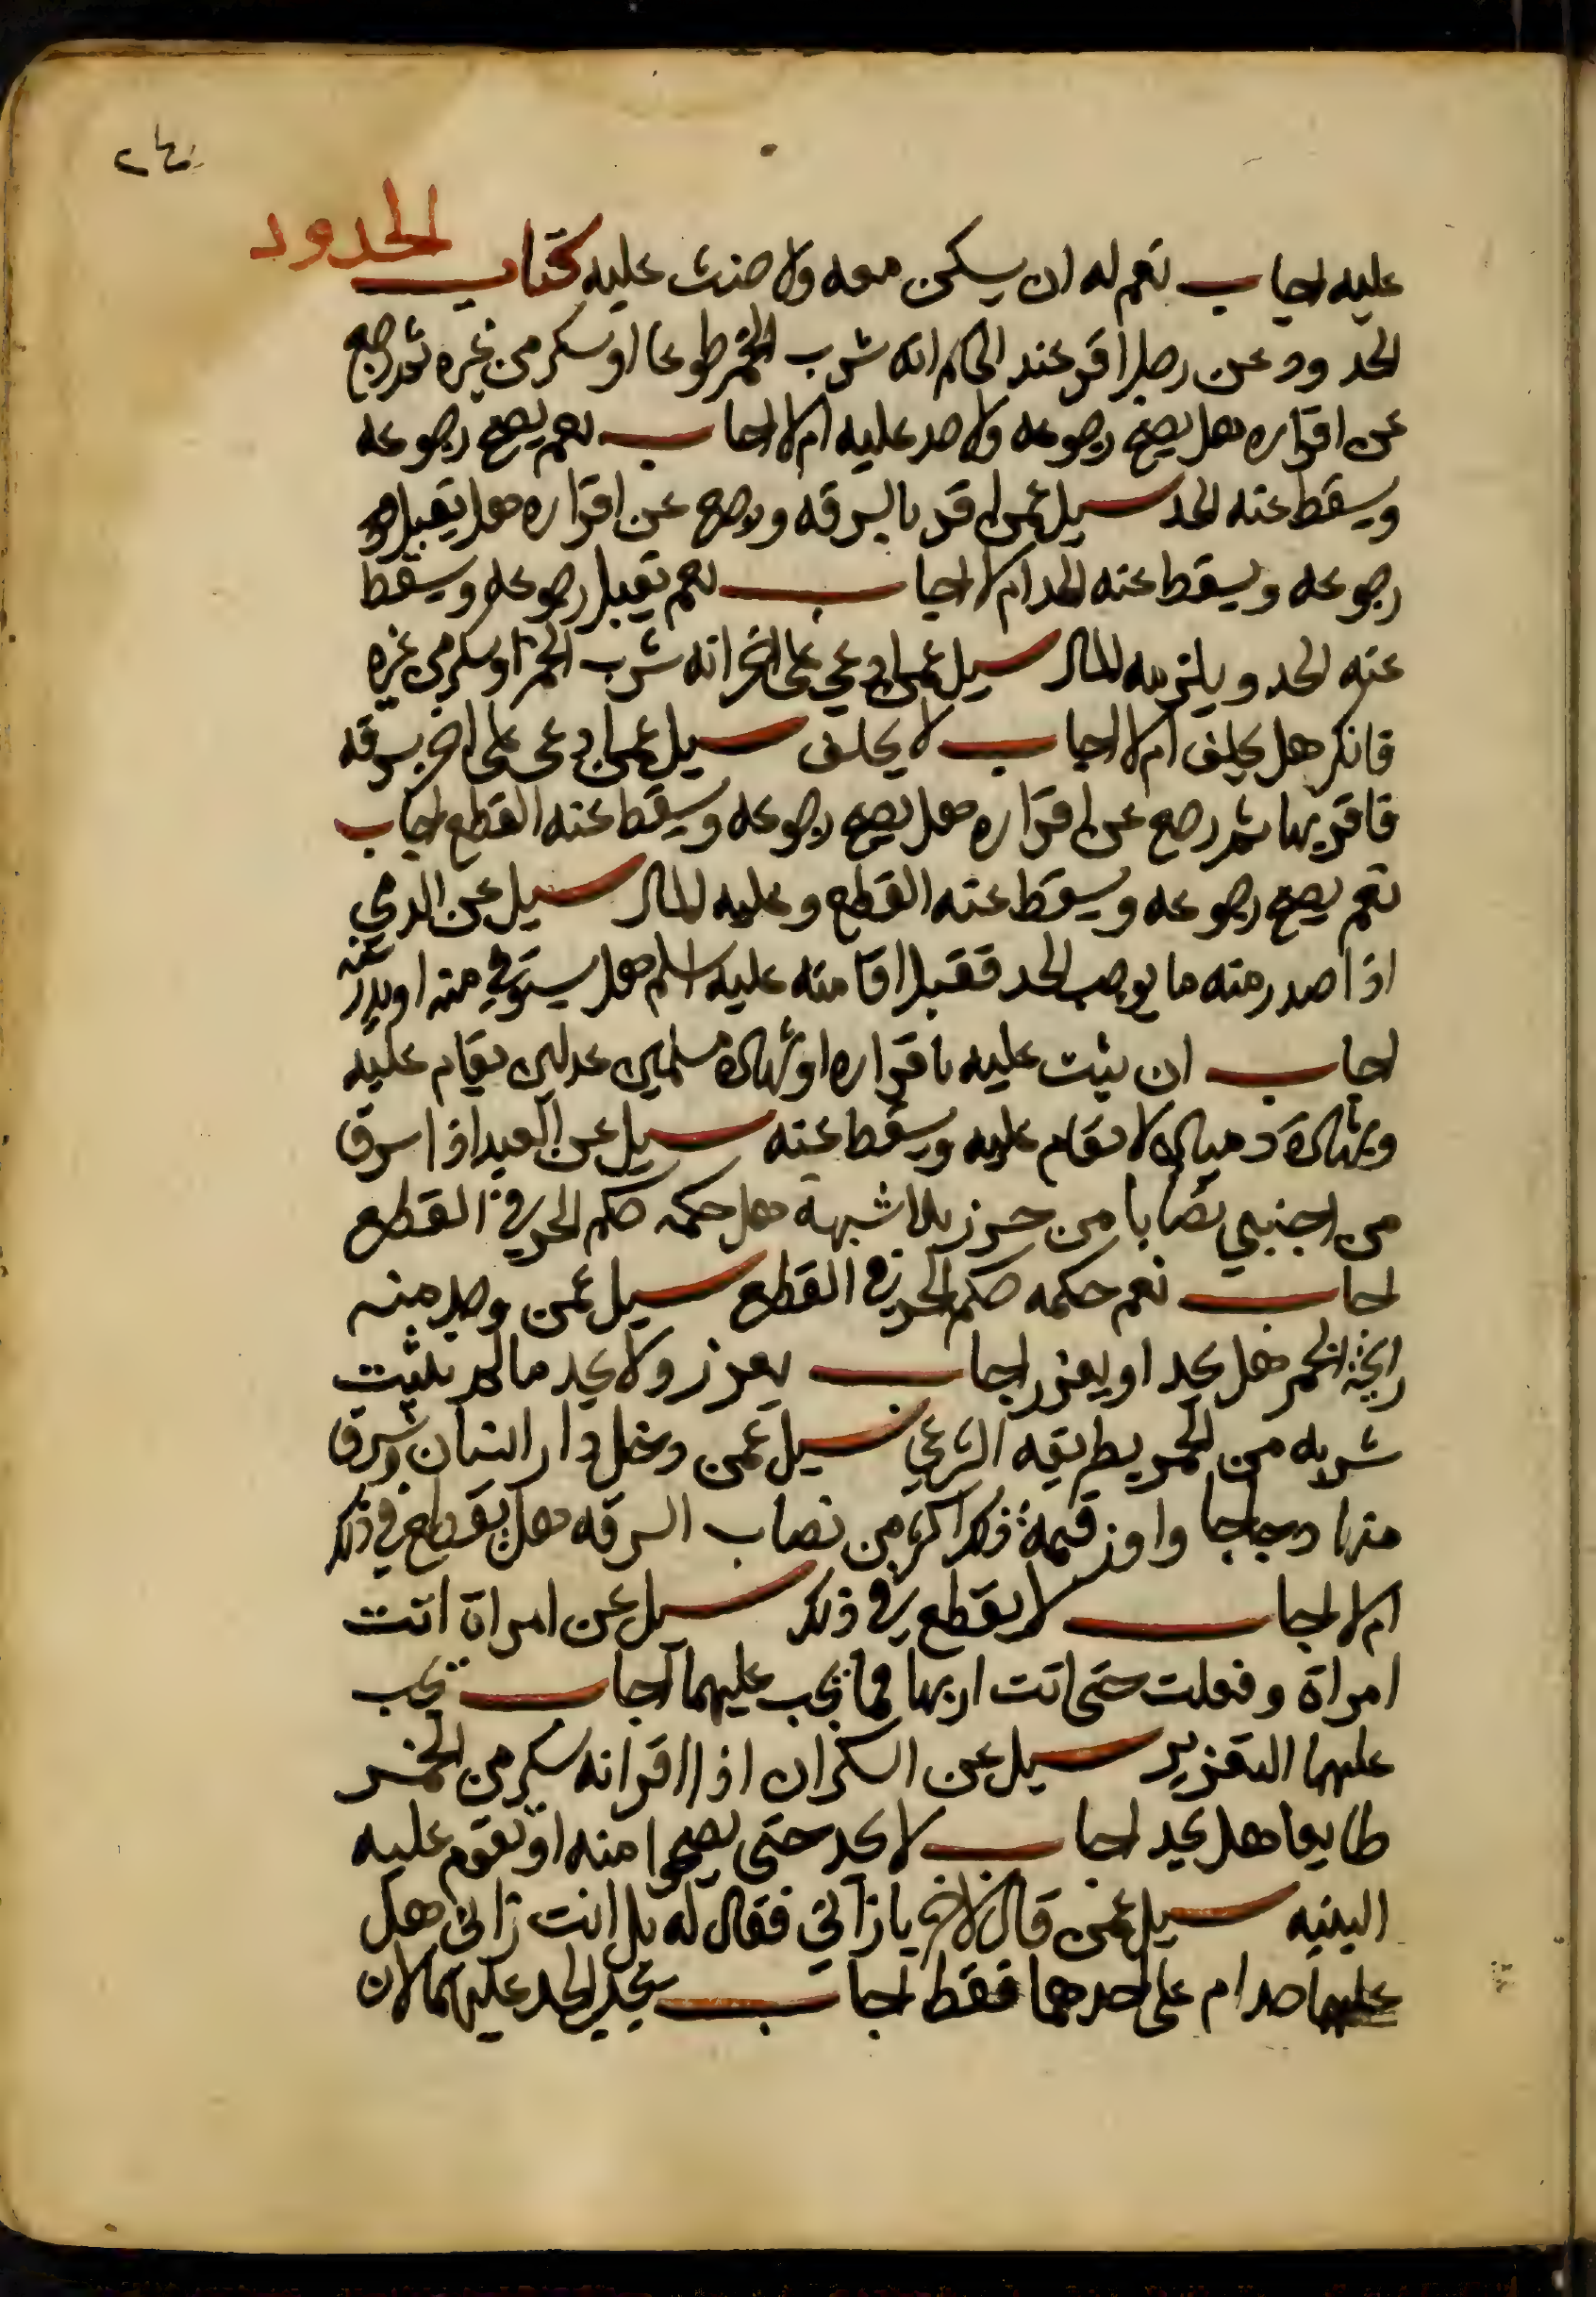 الحدود
عليه اجاب نعم له ان يسكن معه ولا حنث عليه كتاب
الحدود وعن رجل اقر عند الحاكم انه شرب الخمر طوعا او سكر من غيره ثم رجع
عن اقراره هل يصح رجوعه ولا حد عليه ام لا اجاب نعم يصح رجوعه
ويسقط عنه الحد سيل عمن اقر بالسرقه ورجع عن اقراره هل يقبل
رجوعه ويسقط عنه الحد ام لا اجاب نعم يقبل رجوعه ويسقط
عنه الحد ويلزمه المال سيل عمن ادعي على اخر انه شرب الخمر او سكر من غيره
فانكر هل يحلف ام لا اجاب لا يحلف سيل عمن ادعى على اخر بسرقه
فاقر بها ثم رجع عن اقراره هل يصح رجوعه ويسقط عنه القطع اجاب
نعم يصح رجوعه ويسقط عنه القطع وعليه المال سيل عن الذمي
اذا صدر منه ما يوجب الحد فقبل اقامته عليه اسلم هل يستوفي منه او يدرا عنه
اجاب ان يثبت عليه باقراره او شهادة مسلمين عدلين يقام عليه
وبشهادة ذميان لا يقام عليه ويسقط عنه سيل عن العبد اذا سرق
من اجنبي نصابا من حرز بلا شبهة هل حكمه حكم الحر في القطع
اجاب نعم حكمه حكم الحر في القطع سيل عمن وجد منه
رايحة الخمر هل يحد او يعزر اجاب يعزر ولا يحد ما لم يثبت
شربه من الخمر بطريقه الشرعي سيل عمن دخل دار انسان وسرق
منها دجاجا واوز قيمة ذلك اكثر من نصاب السرقه هل يقطع في ذلك
ام لا اجاب لا يقطع في ذلك سيل عن امراة اتت
امراة وفعلت حتى اتت اربها فما يجب عليهما اجاب يجب
عليهما التعزير سيل عن السكران اذا اقر انه سكر من الخمر
طايعا هل يحد اجاب لا يحد حتى يصحوا منه او تقوم عليه
البينه سيل عمن قال لاخر يا زاني فقال له بل انت زاني هل
عليهما حد ام على احدهما فقط اجاب يجب الحد عليهما لان